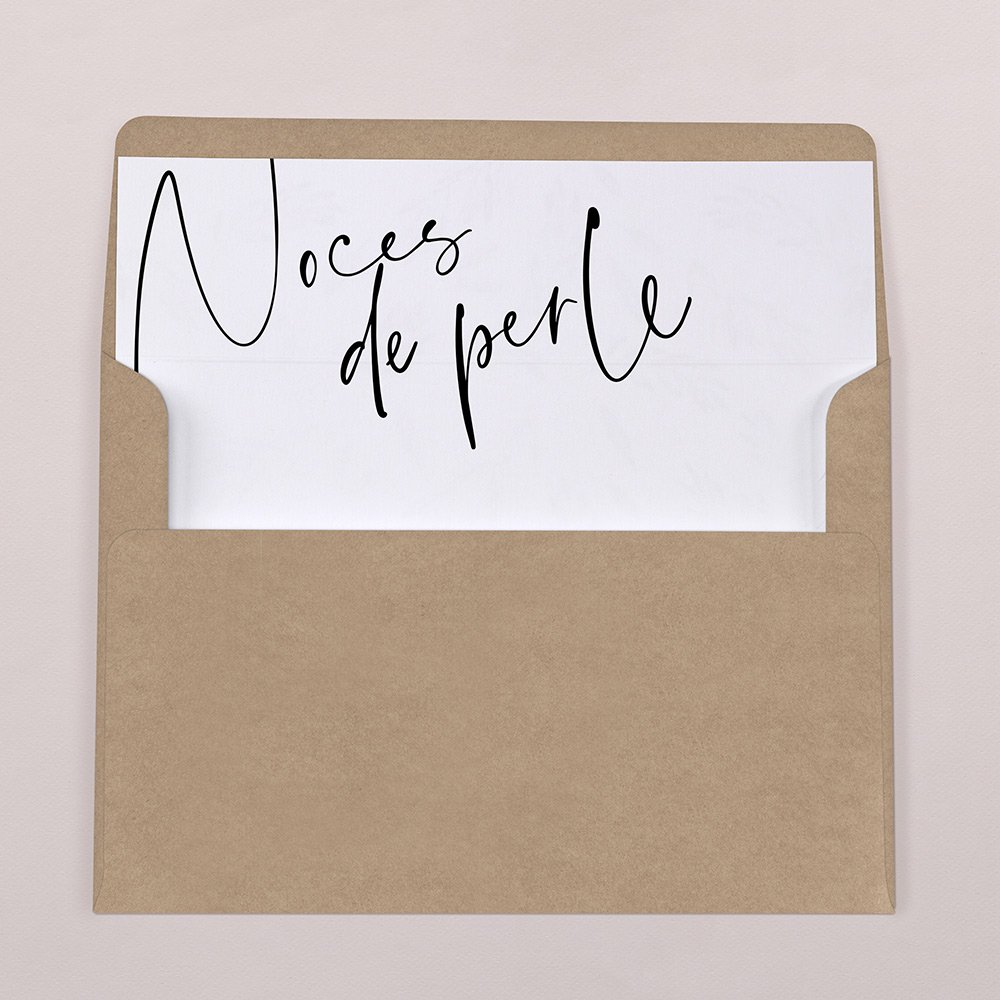 Noces
de perle